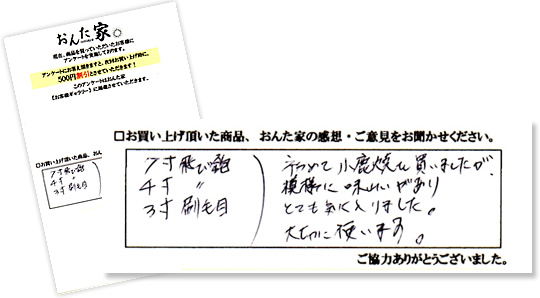 おんた家
現在、商品を買っていただいたお客様に
アンケートを実施しております。
アンケートにお答え頂きますと、次回お買い上げ時に、
500円割引とさせていただきます!
このアンケートはおんた家
【お客様ギャラリー】に掲載させていただきます。
□お買い上げ頂いた商品、おんた
7寸飛び鉋
4寸 〃
3寸刷毛目
□お買い上げ頂いた商品、おんた家の感想・ご意見をお聞かせください。
7寸飛び鉋
4寸 〃
3寸刷毛目
初めて小鹿焼を買いましたが、
模様に味わいがあり
とても気に入りました。
大切に使います。
ご協力ありがとうございました。